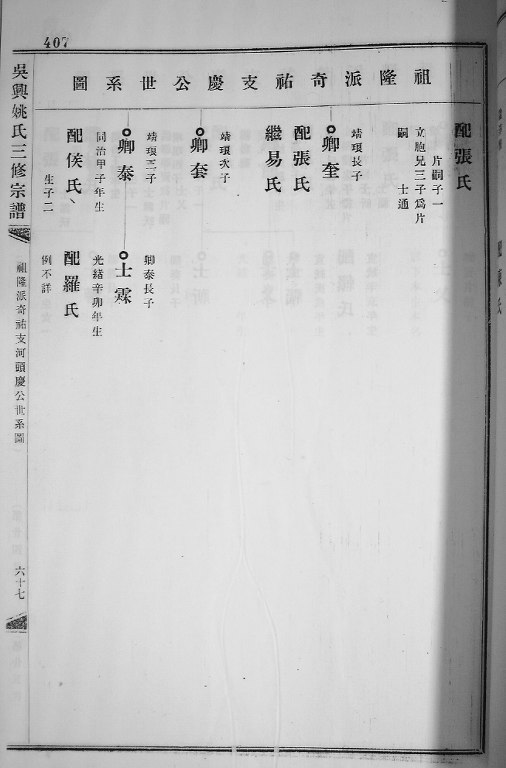 407
祖隆派奇祐支慶公世系圖
配張氏
片嗣子一
立胞兄三子爲片
嗣　士通
靖環長子
卿奎
配張氏
繼易氏
靖環次子
卿套
靖環三子
卿泰
同治甲子年生
配侯氏
生子二
卿泰長子
士霖
光緒辛卯年生
配羅氏
例不詳
吳興姚氏三修宗譜
祖隆派奇祐支河頭慶公世系圖
六十七